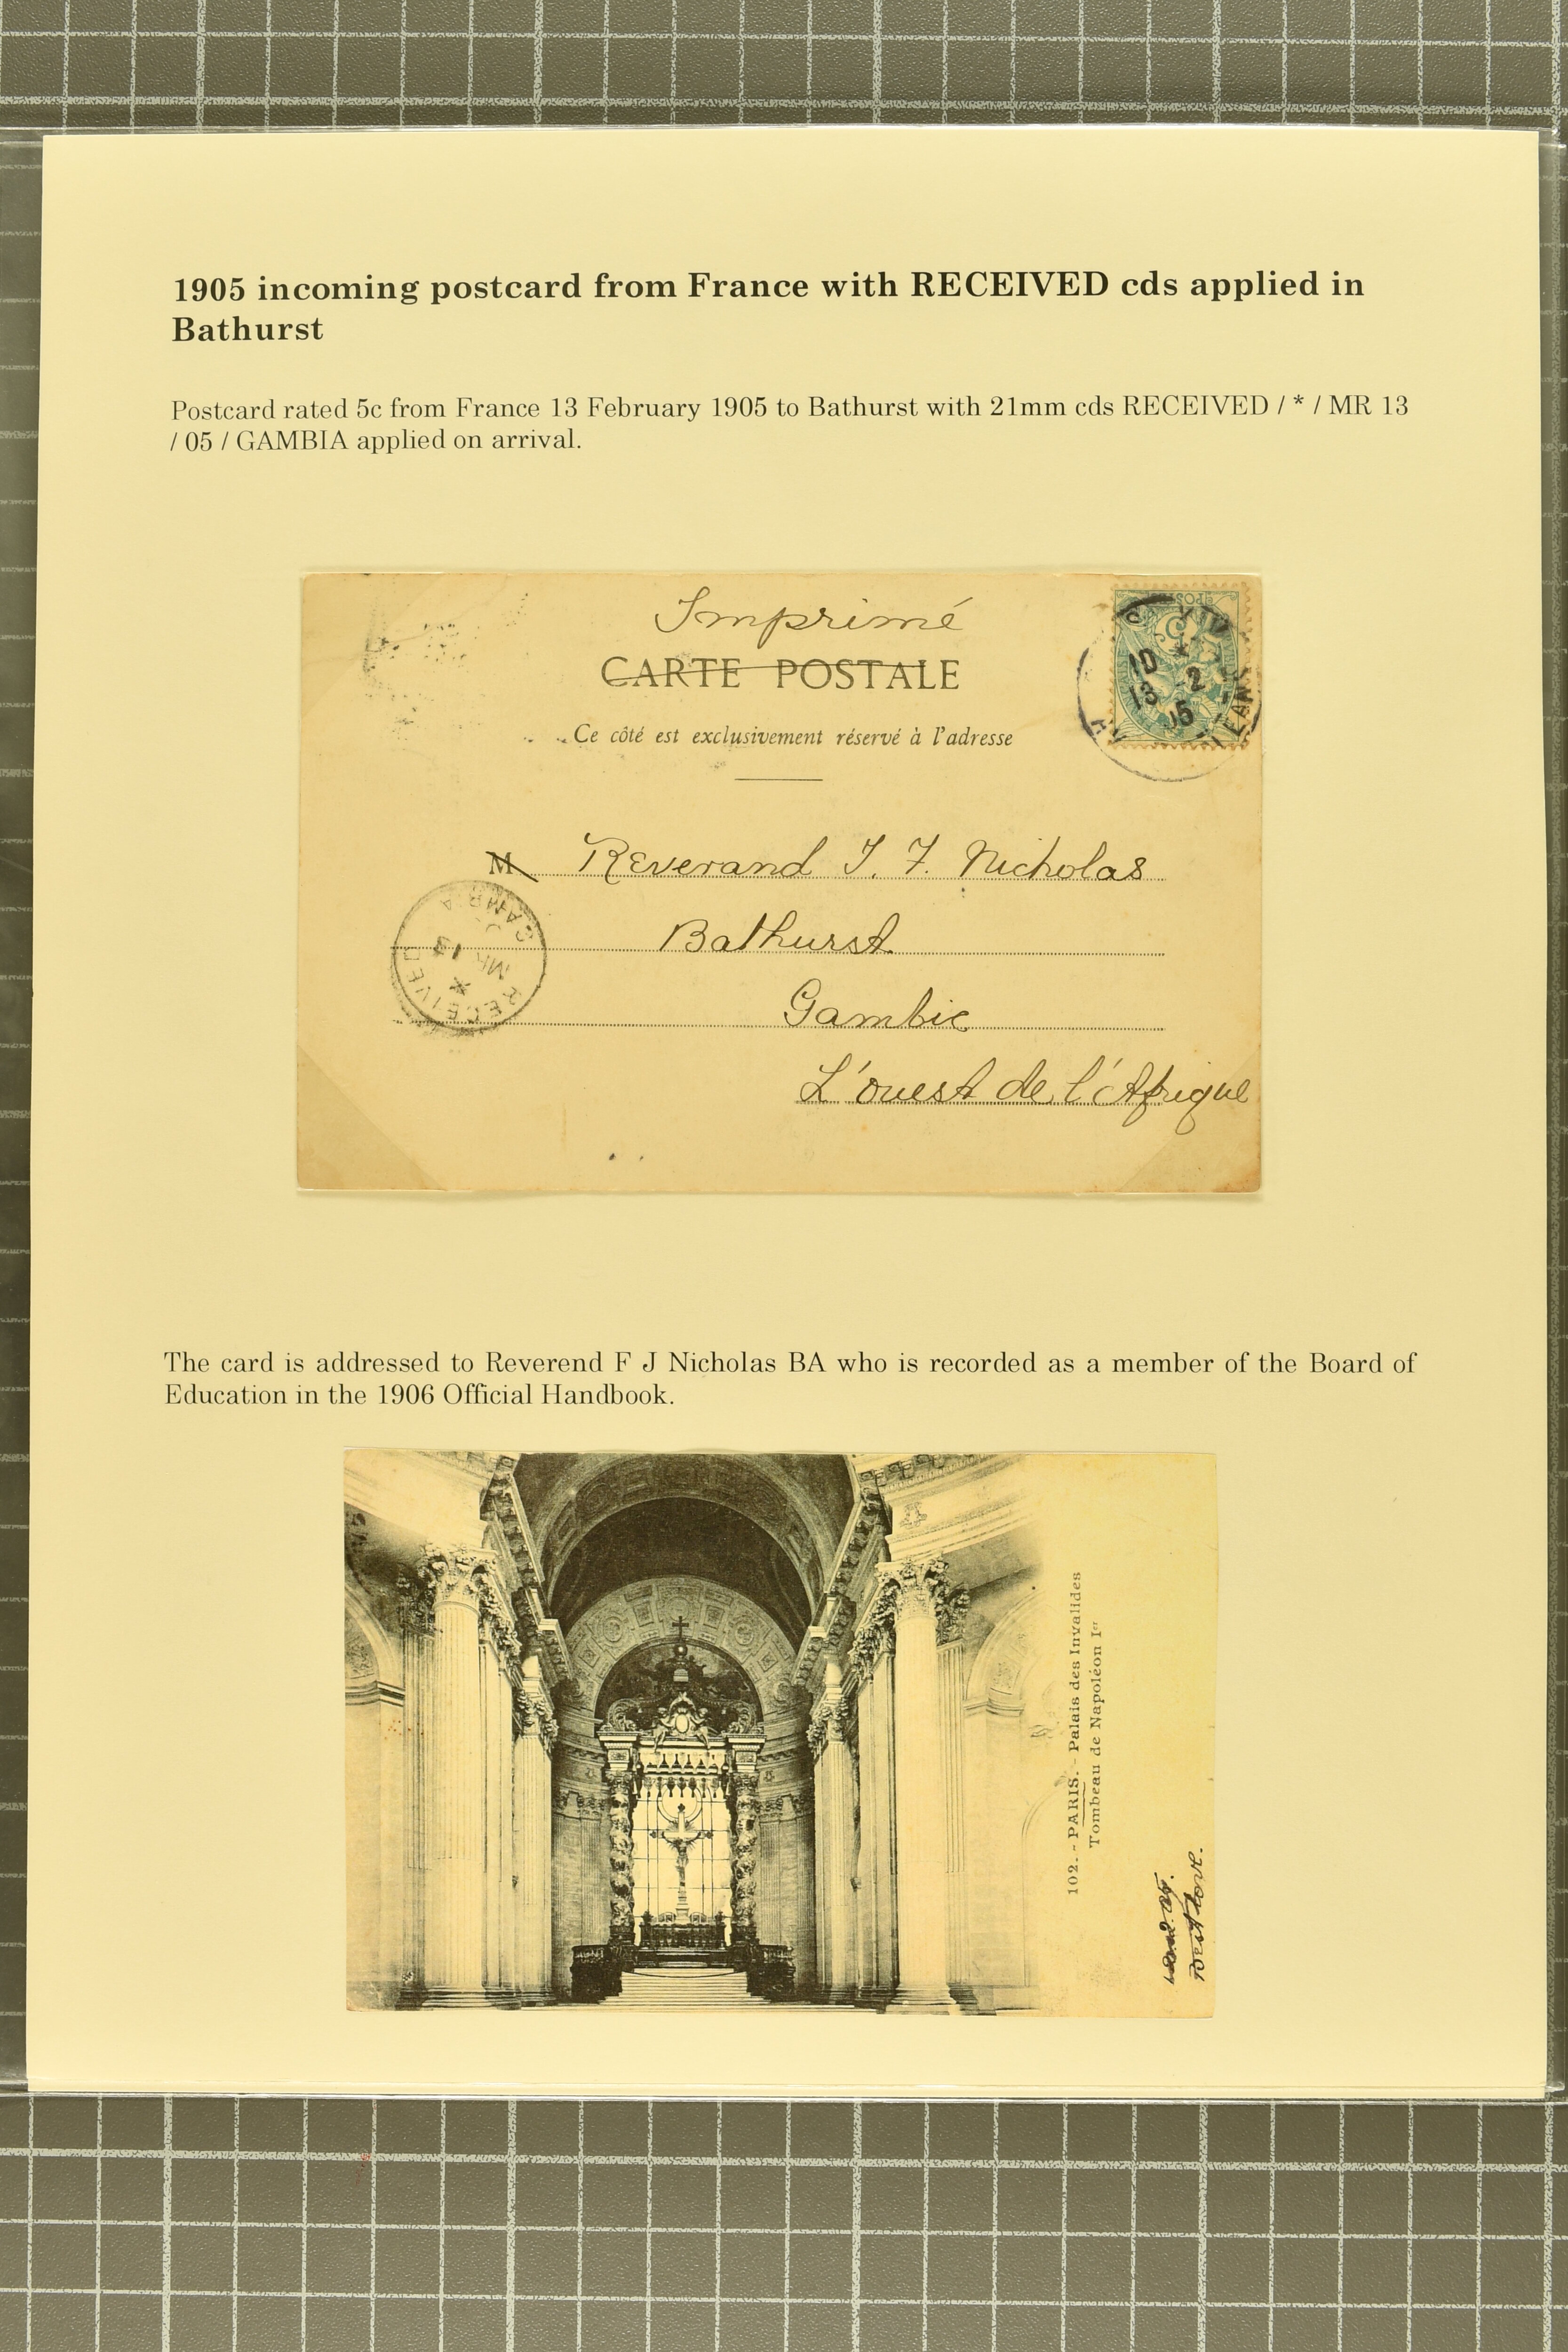 1905 incoming postcard from France with RECEIVED cds applied in
Bathurst
Postcard rated 5c from France 13 February 1905 to Bathurst with 21mm cds RECEIVED / * / MR 13
/ 05 / GAMBIA applied on arrival.
Imprimé
CARTE POSTALE
10
13 -2
05
Ce côté est exclusivement réservé à l'adresse
M Reverand J. F. Nicholas
Bathurst
Gambie
L'ouest de l'Afrique
RECEIVED
*
MR 13
GAMBIA
The card is addressed to Reverend F J Nicholas BA who is recorded as a member of the Board of
Education in the 1906 Official Handbook.
102. - PARIS. - Palais des Invalides
Tombeau de Napoléon Ier
Best love.